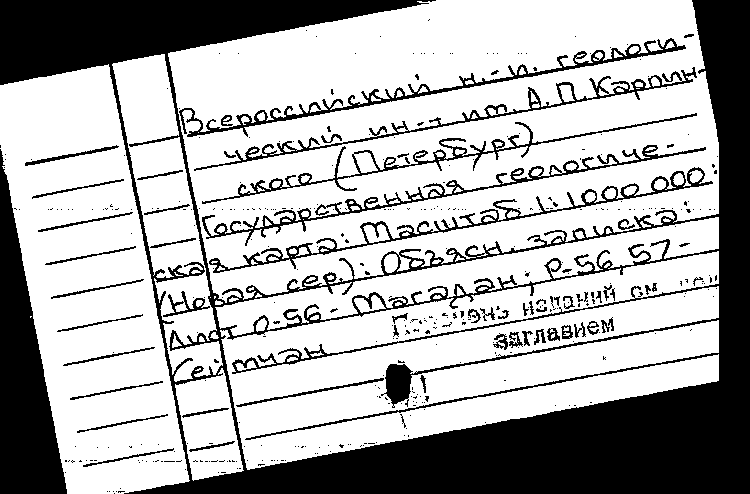 Всероссийский н.-и. геологи-
ческий ин-т им. А.П. Карпин-
ского (Петербург)
Государственная геологиче-
ская карта: Масштаб 1:1000 000:
(Новая сер.): Объясн. записка:
Лист О-56 - Магадан; Р-56,57-
Сеймчан
Перечень изданий см. под
заглавием